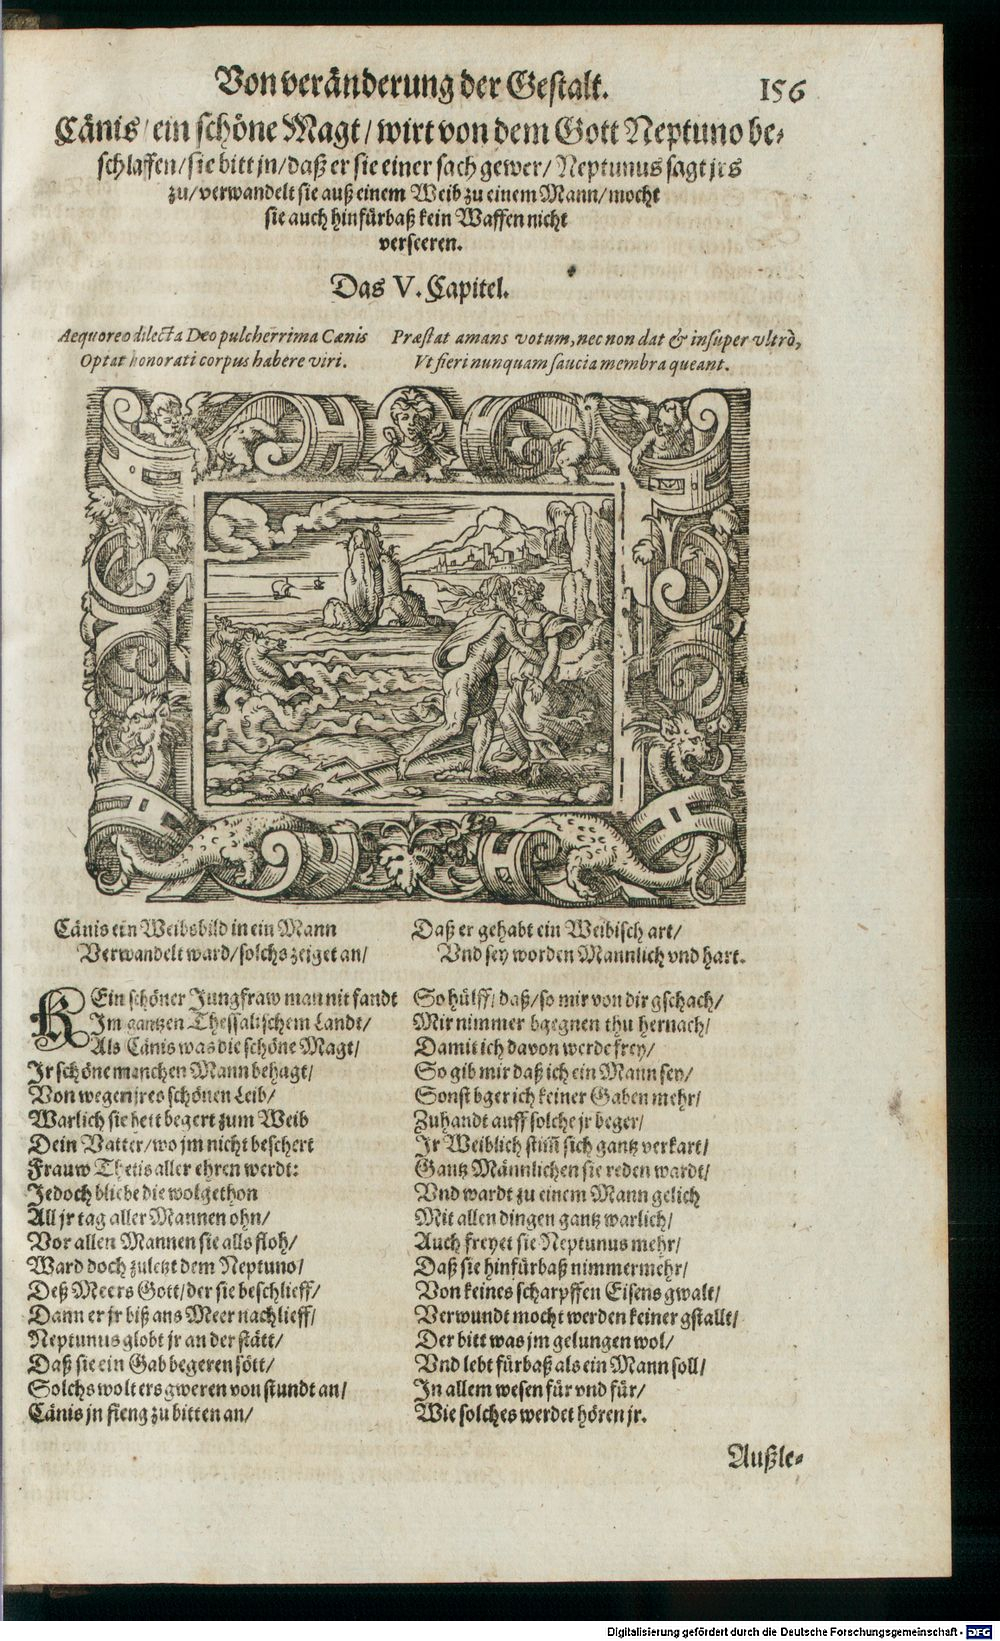 Von veränderung der Gestalt. 156
Cänis / ein schöne Magt / wirt von dem Gott Neptuno be-
schlaffen / sie bitt jn / daß er sie einer sach gewer / Neptunus sagt jrs
zu / verwandelt sie auß einem Weib zu einem Mann / mocht
sie auch hinfürbaß kein Waffen nicht
verseeren.
Das V. Capitel.
Aequoreo dilecta Deo pulcherrima Cænis
Optat honorati corpus habere viri.
Præstat amans votum, nec non dat & insuper vltrò,
Vt fieri nunquam saucia membra queant.
Cänis ein Weibsbild in ein Mann
Verwandelt ward / solchs zeiget an /
Daß er gehabt ein Weibisch art /
Vnd sey worden Mannlich vnd hart.
KEin schöner Jungfraw man nit fandt
Im gantzen Thessalischem Landt /
Als Cänis was die schöne Magt /
Jr schöne manchen Mann behagt /
Von wegen jres schönen Leib /
Warlich sie hett begert zum Weib
Dein Vatter / wo jm nicht beschert
Frauw Thetis aller ehren werdt:
Jedoch bliebe die wolgethon
All jr tag aller Mannen ohn /
Vor allen Mannen sie alls floh /
Ward doch zuletzt dem Neptuno /
Deß Meers Gott / der sie beschlieff /
Dann er jr biß ans Meer nachlieff /
Neptunus globt jr an der stätt /
Daß sie ein Gab begeren sött /
Solchs wolt ers gweren von stundt an /
Cänis jn fieng zu bitten an /
So hülff / daß / so mir von dir gschach /
Mir nimmer bgegnen thu hernach /
Damit ich davon werde frey /
So gib mir daß ich ein Mann sey /
Sonst bger ich keiner Gaben mehr /
Zuhandt auff solche jr beger /
Jr Weiblich stim̃ sich gantz verkart /
Gantz Männlichen sie reden wardt /
Vnd wardt zu einem Mann gelich
Mit allen dingen gantz warlich /
Auch freyet sie Neptunus mehr /
Daß sie hinfürbaß nimmermehr /
Von keines scharpffen Eisens gwalt /
Verwundt mocht werden keiner gstallt /
Der bitt was jm gelungen wol /
Vnd lebt fürbaß als ein Mann soll /
In allem wesen für vnd für /
Wie solches werdet hören jr.
Außle-
Digitalisierung gefördert durch die Deutsche Forschungsgemeinschaft - DFG